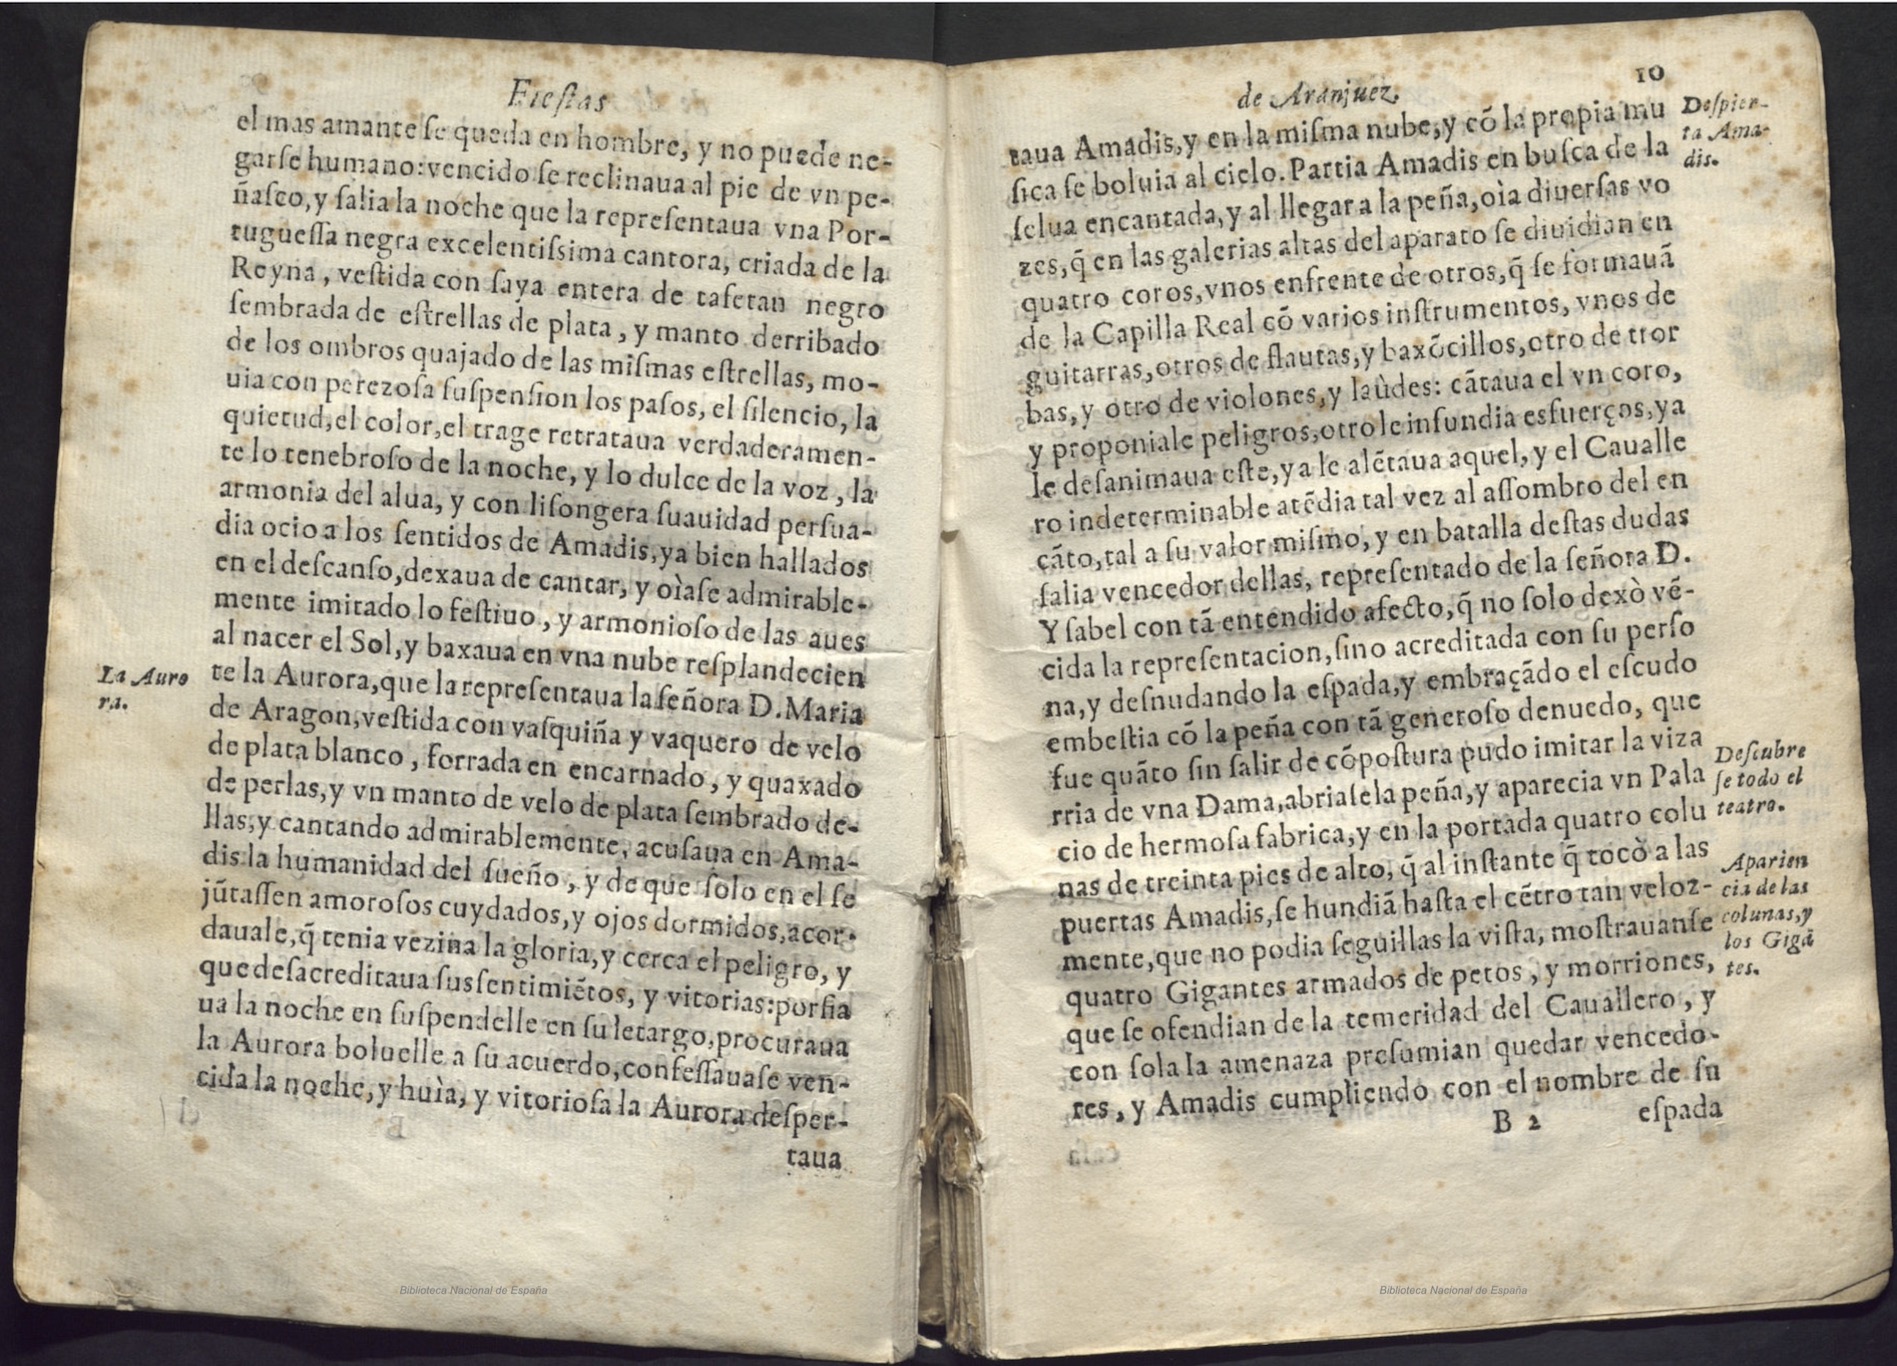 Fieſtas
el mas amante ſe queda en hombre, y no puede ne-
garſe humano: vencido ſe reclinaua al pie de vn pe-
ñaſco, y ſalia la noche que la repreſentaua vna Por-
tugueſſa negra excelentiſsima cantora, criada de la
Reyna, veſtida con ſaya entera de tafetan negro
ſembrada de eſtrellas de plata, y manto derribado
de los ombros quajado de las miſmas eſtrellas, mo-
uia con perezoſa ſuſpenſion los paſos, el ſilencio, la
quietud, el color, el trage retrataua verdaderamen-
te lo tenebroſo de la noche, y lo dulce de la voz, la
armonia del alua, y con liſongera ſuauidad perſua-
dia ocio a los ſentidos de Amadis, ya bien hallados
en el deſcanſo, dexaua de cantar, y oìaſe admirable-
mente imitado lo feſtiuo, y armonioſo de las aues
al nacer el Sol, y baxaua en vna nube reſplandecien
La Auro
ra.
te la Aurora, que la repreſentaua la ſeñora D. Maria
de Aragon, veſtida con vaſquiña y vaquero de velo
de plata blanco, forrada en encarnado, y quaxado
de perlas, y vn manto de velo de plata ſembrado de-
llas, y cantando admirablemente, acuſaua en Ama-
dis la humanidad del ſueño, y de que ſolo en el ſe
jũtaſſen amoroſos cuydados, y ojos dormidos, acor-
dauale, q̃ tenia vezina la gloria, y cerca el peligro, y
que deſacreditaua ſus ſentimiẽtos, y vitorias: porfia
ua la noche en ſuſpendelle en ſu letargo, procuraua
la Aurora boluelle a ſu acuerdo, confeſſauaſe ven-
cida la noche, y huìa, y vitorioſa la Aurora deſper-
taua
de Aranjuez.
10
Deſpier-
ta Ama-
dis.
taua Amadis, y en la miſma nube, y cõ la propia mu
ſica ſe boluia al cielo. Partia Amadis en buſca de la
ſelua encantada, y al llegar a la peña, oìa diuerſas vo
zes, q̃ en las galerias altas del aparato ſe diuidian en
quatro coros, vnos enfrente de otros, q̃ ſe formauã
de la Capilla Real cõ varios inſtrumentos, vnos de
guitarras, otros de flautas, y baxõcillos, otro de tror
bas, y otro de violones, y laùdes: cãtaua el vn coro,
y proponiale peligros, otro le infundia esfuerços, ya
le deſanimaua eſte, ya le alẽtaua aquel, y el Caualle
ro indeterminable atẽdia tal vez al aſſombro del en
cãto, tal a ſu valor miſmo, y en batalla deſtas dudas
ſalia vencedor dellas, repreſentado de la ſeñora D.
Yſabel con tã entendido afecto, q̃ no ſolo dexò vẽ-
cida la repreſentacion, ſino acreditada con ſu perſo
na, y deſnudando la eſpada, y embraçãdo el eſcudo
embeſtia cõ la peña con tã generoſo denuedo, que
fue quãto ſin ſalir de cõpoſtura pudo imitar la viza
rria de vna Dama, abriaſele la peña, y aparecia vn Pala
cio de hermoſa fabrica, y en la portada quatro colu
nas de treinta pies de alto, q̃ al inſtante q̃ tocò a las
puertas Amadis, ſe hundiã haſta el cẽtro tan veloz-
mente, que no podia ſeguillas la viſta, moſtrauanſe
quatro Gigantes armados de petos, y morriones,
que ſe ofendian de la temeridad del Cauallero, y
con ſola la amenaza preſumian quedar vencedo-
res, y Amadis cumpliendo con el nombre de ſu
Deſcubre
ſe todo el
teatro.
Aparien
cia de las
colunas, y
los Gigã
tes.
B 2
eſpada
Biblioteca Nacional de España
Biblioteca Nacional de España